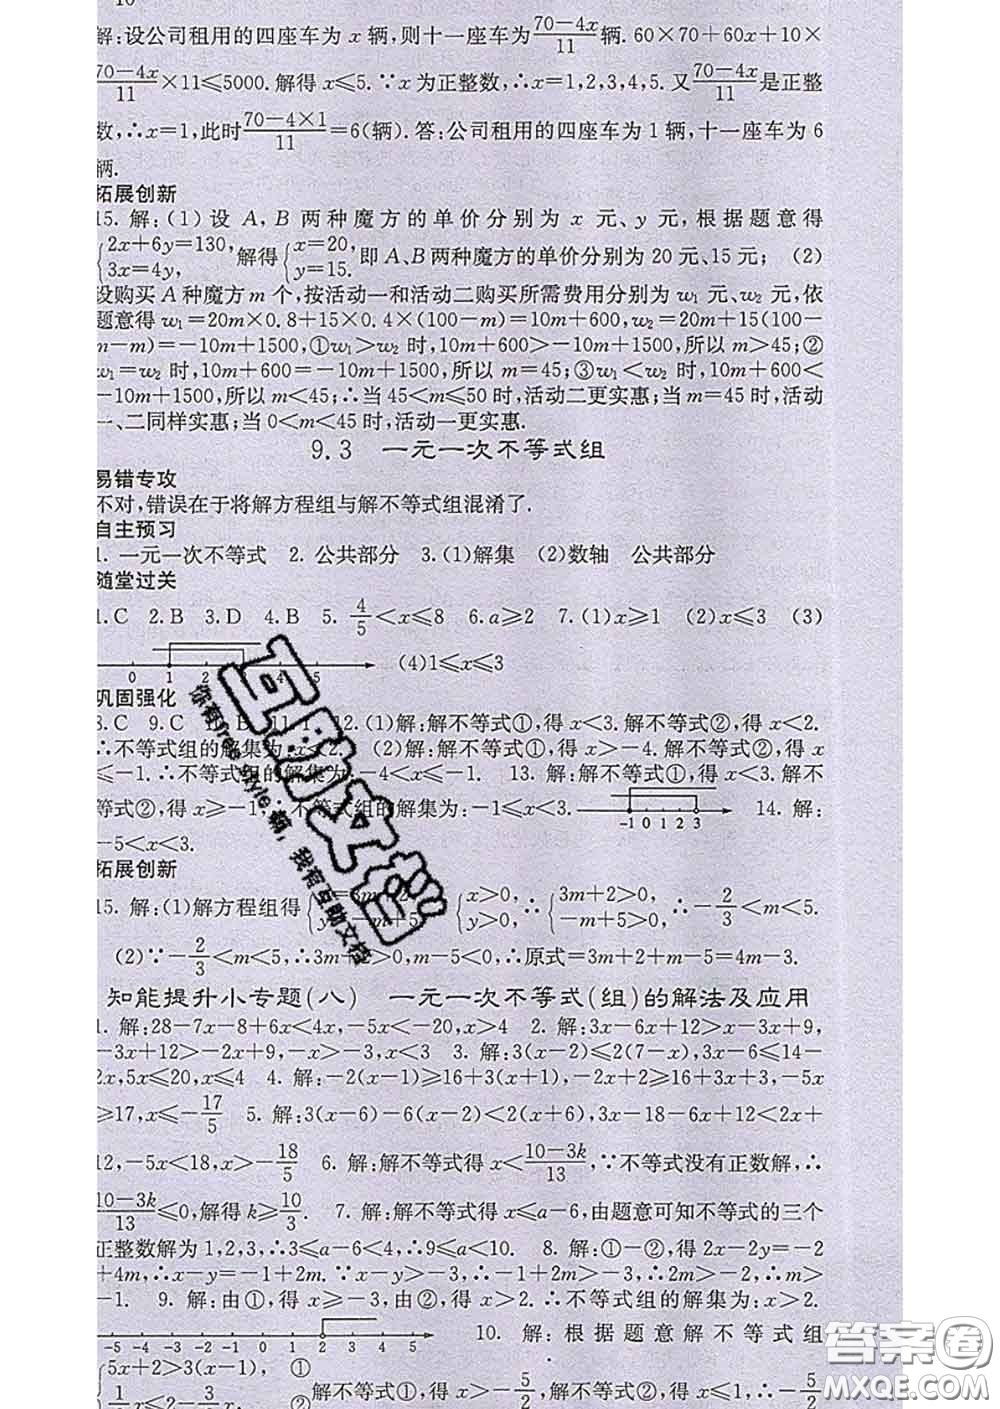 10
解:设公司租用的四座车为 x 辆,则十一座车为(70-4x)/11 辆. 60×70+60x+10×
(70-4x)/11×11≤5000. 解得 x≤5. ∵x 为正整数,∴x=1,2,3,4,5. 又(70-4x)/11是正整
数,∴x=1,此时(70-4×1)/11=6(辆). 答:公司租用的四座车为 1 辆,十一座车为 6
辆.
拓展创新
15. 解:(1) 设 A, B 两种魔方的单价分别为 x 元、y 元,根据题意得
{2x+6y=130, 3x=4y, 解得{x=20, y=15. 即 A、B 两种魔方的单价分别为 20 元、15 元; (2)
设购买 A 种魔方 m 个,按活动一和活动二购买所需费用分别为 w₁ 元、w₂ 元,依
题意得 w₁=20m×0.8+15×0.4×(100-m)=10m+600,w₂=20m+15(100-
m-m)=-10m+1500,①w₁>w₂ 时,10m+600>-10m+1500,所以 m>45;②
w₁=w₂ 时,10m+600=-10m+1500,所以 m=45;③w₁<w₂ 时,10m+600<
-10m+1500,所以 m<45;∴当 45<m≤50 时,活动二更实惠;当 m=45 时,活动
一、二同样实惠;当 0<m<45 时,活动一更实惠.
9.3 一元一次不等式组
易错专攻
不对,错误在于将解方程组与解不等式组混淆了.
自主预习
1. 一元一次不等式 2. 公共部分 3. (1)解集 (2)数轴 公共部分
随堂过关
1. C 2. B 3. D 4. B 5. 4/5<x≤8 6. a≥2 7. (1)x≥1 (2)x≤3 (3)
0 1 2 4 5 (4)1≤x≤3
巩固强化
8. C 9. C B 11. 12. (1)解:解不等式①,得 x<3. 解不等式②,得 x<2.
∴不等式组的解集为:x<2. (2)解:解不等式①,得 x>-4. 解不等式②,得 x
≤-1. ∴不等式组的解集为:-4<x≤-1. 13. 解:解不等式①,得 x<3. 解不
等式②,得 x≥-1. 不等式组的解集为:-1≤x<3. -1 0 1 2 3 14. 解:
-5<x<3.
拓展创新
15. 解:(1)解方程组得 {x>0, y>0, ∴{3m+2>0, -m+5>0, ∴-2/3<m<5.
(2)∵-2/3<m<5,∴3m+2>0,m-5<0,∴原式=3m+2+m-5=4m-3.
知能提升小专题(八) 一元一次不等式(组)的解法及应用
1. 解:28-7x-8+6x<4x,-5x<-20,x>4 2. 解:3x-6x+12>x-3x+9,
-3x+12>-2x+9,-x>-3,x<3 3. 解:3(x-2)≤2(7-x),3x-6≤14-
2x,5x≤20,x≤4 4. 解:-2(x-1)≥16+3(x+1),-2x+2≥16+3x+3,-5x
≥17,x≤-17/5 5. 解:3(x-6)-6(x-2)<2(x+6),3x-18-6x+12<2x+
12,-5x<18,x>-18/5 6. 解:解不等式得 x<(10-3k)/13,∵不等式没有正数解,∴
(10-3k)/13≤0,解得 k≥10/3. 7. 解:解不等式得 x≤a-6,由题意可知不等式的三个
正整数解为 1,2,3,∴3≤a-6<4,∴9≤a<10. 8. 解:①-②,得 2x-2y=-2
+4m,∴x-y=-1+2m. ∵x-y>-3,∴-1+2m>-3,∴2m>-2,∴m>
-1. 9. 解:由①,得 x≥-3,由②,得 x>2. ∴不等式组的解集为:x>2.
-5 -4 -3 -2 -1 0 1 2 3 4 5 10. 解:根据题意解不等式组
{5x+2>3(x-1), ① 解不等式①,得 x>-5/2,解不等式②,得 x≤1,∴-5/2
互助文档
你有free style吗, 我有互助文档
答案圈
MXQE.COM